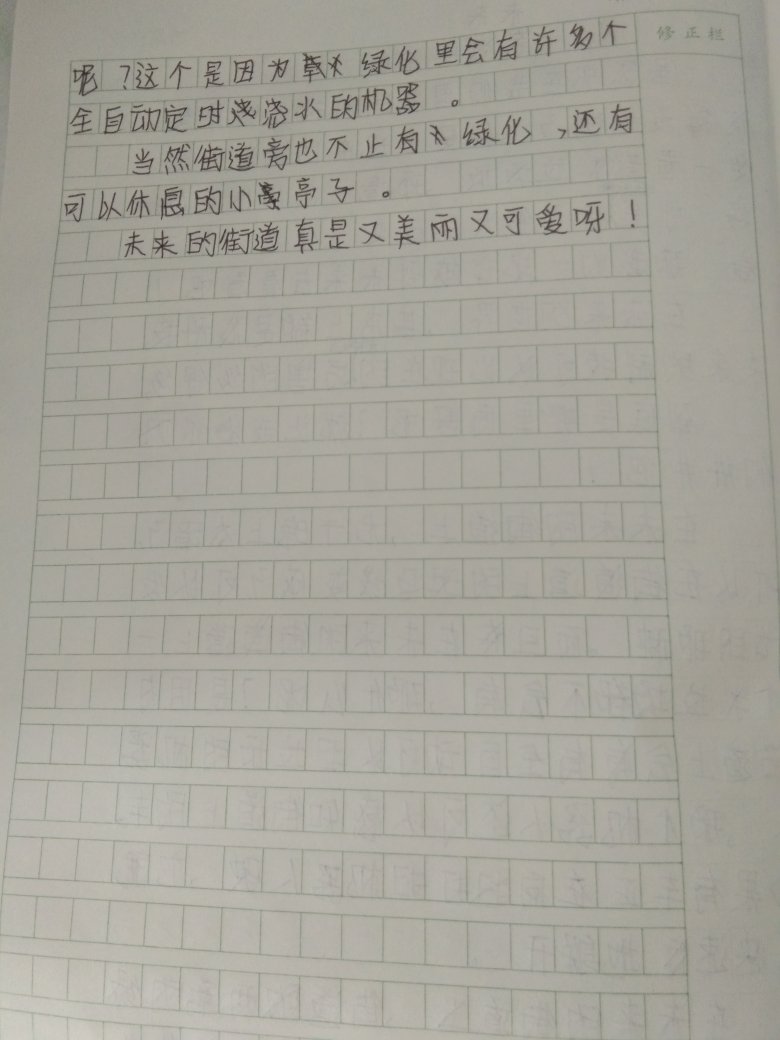 修正栏
呢?这个是因为绿化里会有许多个
全自动定时浇水的机器。
当然街道旁也不止有绿化,还有
可以休息的小亭子。
未来的街道真是又美丽又可爱呀!